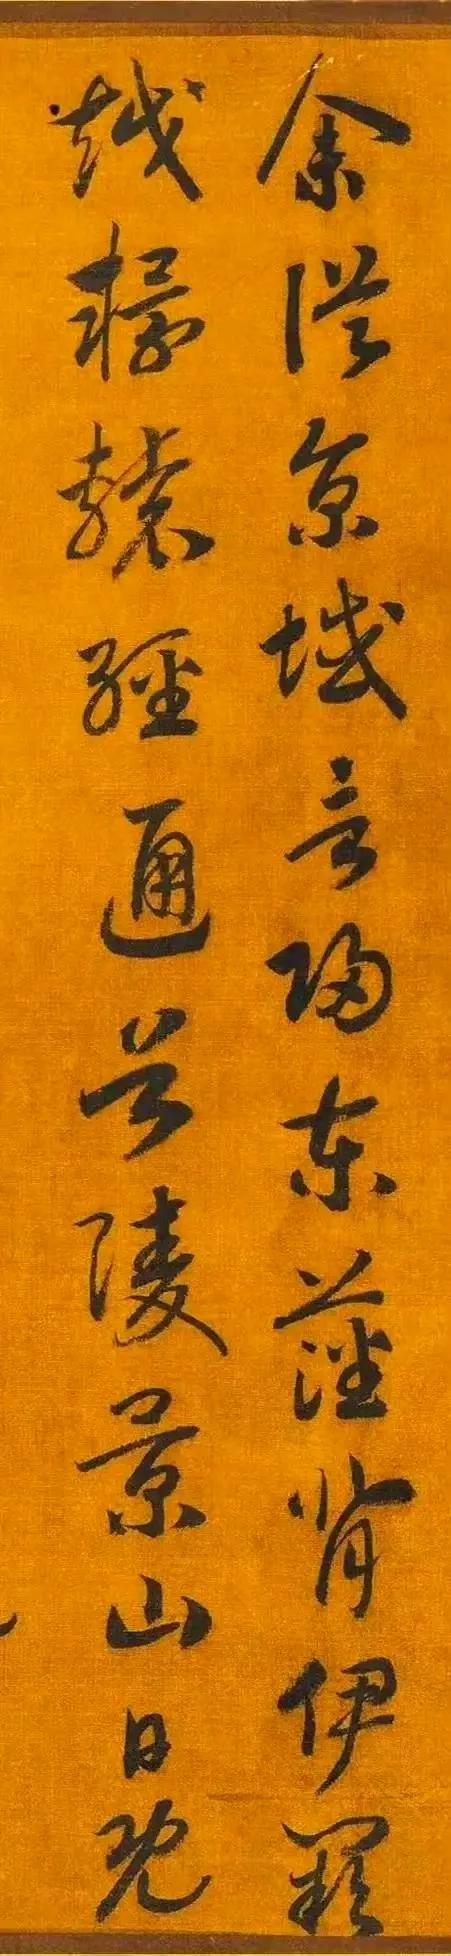 余從京域言歸東藩背伊闕
越轘轅經通谷陵景山日既